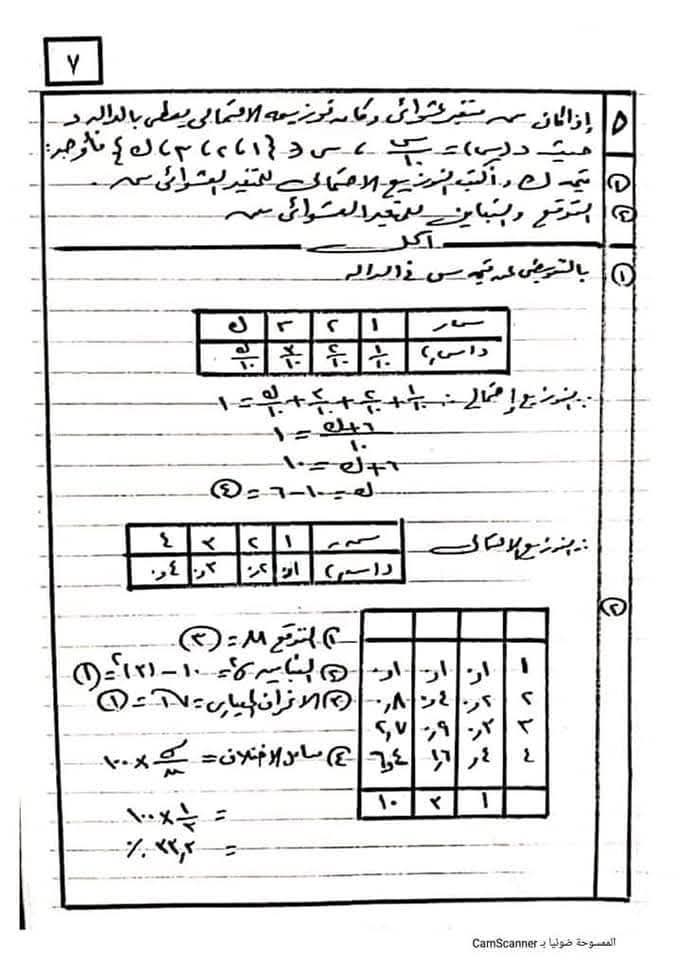 ٧
٥ إذا كان سـ متغير عشوائى وكان توزيعه الاحتمالى يعطى بالداله د
حيث د(س) = س/١٠ ، س ∈ {١، ٢، ٣، ك} فأوجد:
١ قيمه ك وأكتب التوزيع الاحتمالى للمتغير العشوائى سـ.
٢ التوقع والتباين للمتغير العشوائى سـ
الحل
١ بالتعويض عن قيمه س فى الداله
سـر ١ ٢ ٣ ك
د(سـر) ١/١٠ ٢/١٠ ٣/١٠ ك/١٠
∵ التوزيع إحتمالى ∴ ١/١٠ + ٢/١٠ + ٣/١٠ + ك/١٠ = ١
٦+ك/١٠ = ١
٦+ك = ١٠
ك = ١٠ - ٦ = ٤
∴ التوزيع الاحتمالى
سـر ١ ٢ ٣ ٤
د(سـر) ٠,١ ٠,٢ ٠,٣ ٠,٤
٢
١ ٠,١ ٠,١ ٠,١
٢ ٠,٢ ٠,٤ ٠,٨
٣ ٠,٣ ٠,٩ ٢,٧
٤ ٠,٤ ١,٦ ٦,٤
١ ٣ ١٠
١) التوقع M = ٣
٢) التباين σ² = ١٠ - (٣)² = ١
٣) الانحراف المعيارى = √١ = ١
٤) معامل الاختلاف = σ/M × ١٠٠
= ١/٣ × ١٠٠
= ٣٣,٣ %
الممسوحة ضوئيا بـ CamScanner